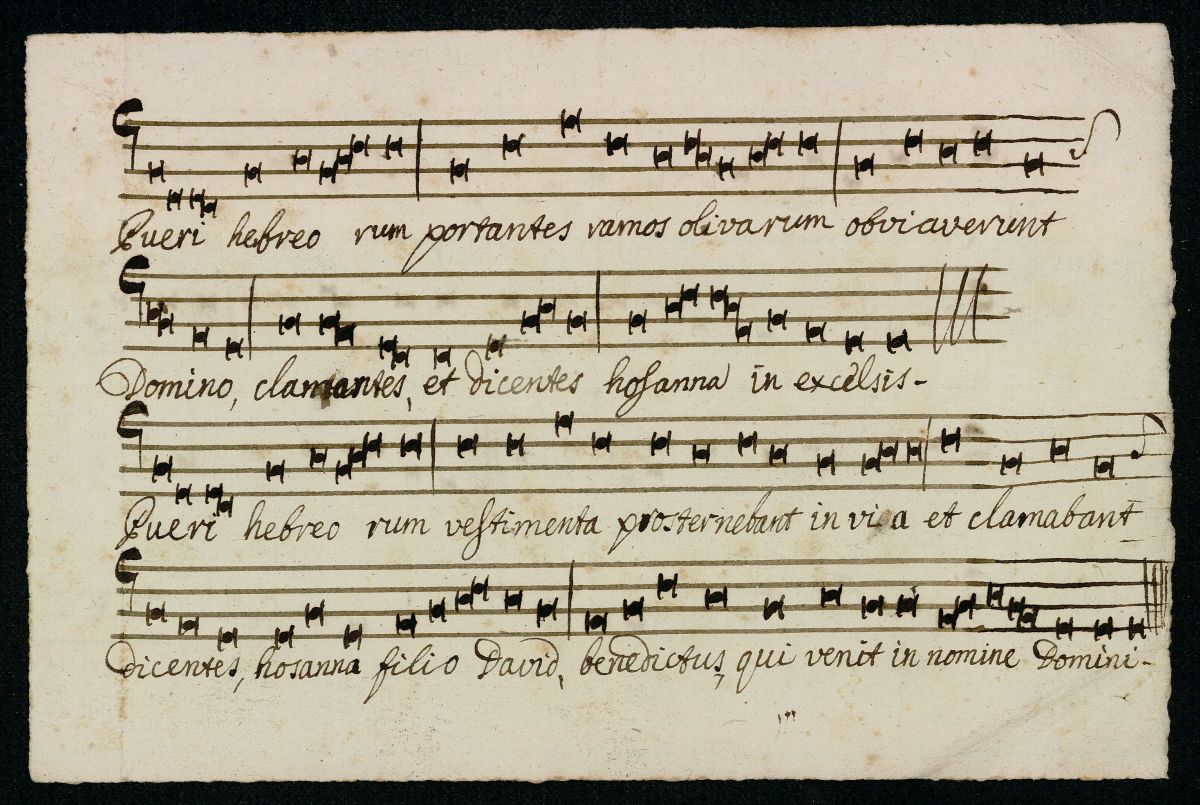 Pueri hebreo rum portantes ramos olivarum obviaverunt
Domino, clamantes, et dicentes hosanna in excelsis-
Pueri hebreo rum vestimenta prosternebant in vi a et clamabant
dicentes, hosanna filio David, benedictus, qui venit in nomine Domini-